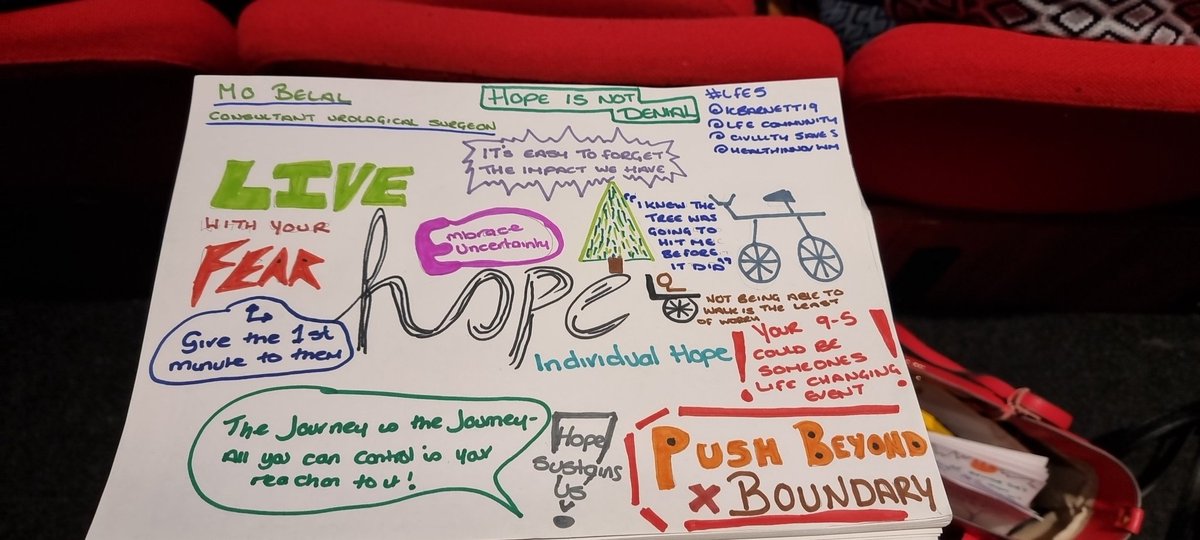 MO BELAL
CONSULTANT UROLOGICAL SURGEON
HOPE IS NOT
DENIAL
#LFE5
@KBARNETT19
@LFE COMMUNITY
@CIVILITY SAVES
@HEALTHINNOVWM
IT'S EASY TO FORGET
THE IMPACT WE HAVE
LIVE
WITH YOUR
FEAR
Embrace
Uncertainty
"I KNEW THE
TREE WAS
GOING TO
HIT ME
BEFORE
IT DID"
hope
NOT BEING ABLE TO
WALK IS THE LEAST
OF WORRY
Give the 1st
minute to them
Individual Hope
! YOUR 9-5 !
COULD BE
SOMEONES
LIFE CHANGING
EVENT
The Journey is the Journey-
All you can control is your
reaction to it!
Hope
Sustains
Us
PUSH BEYOND
x BOUNDARY